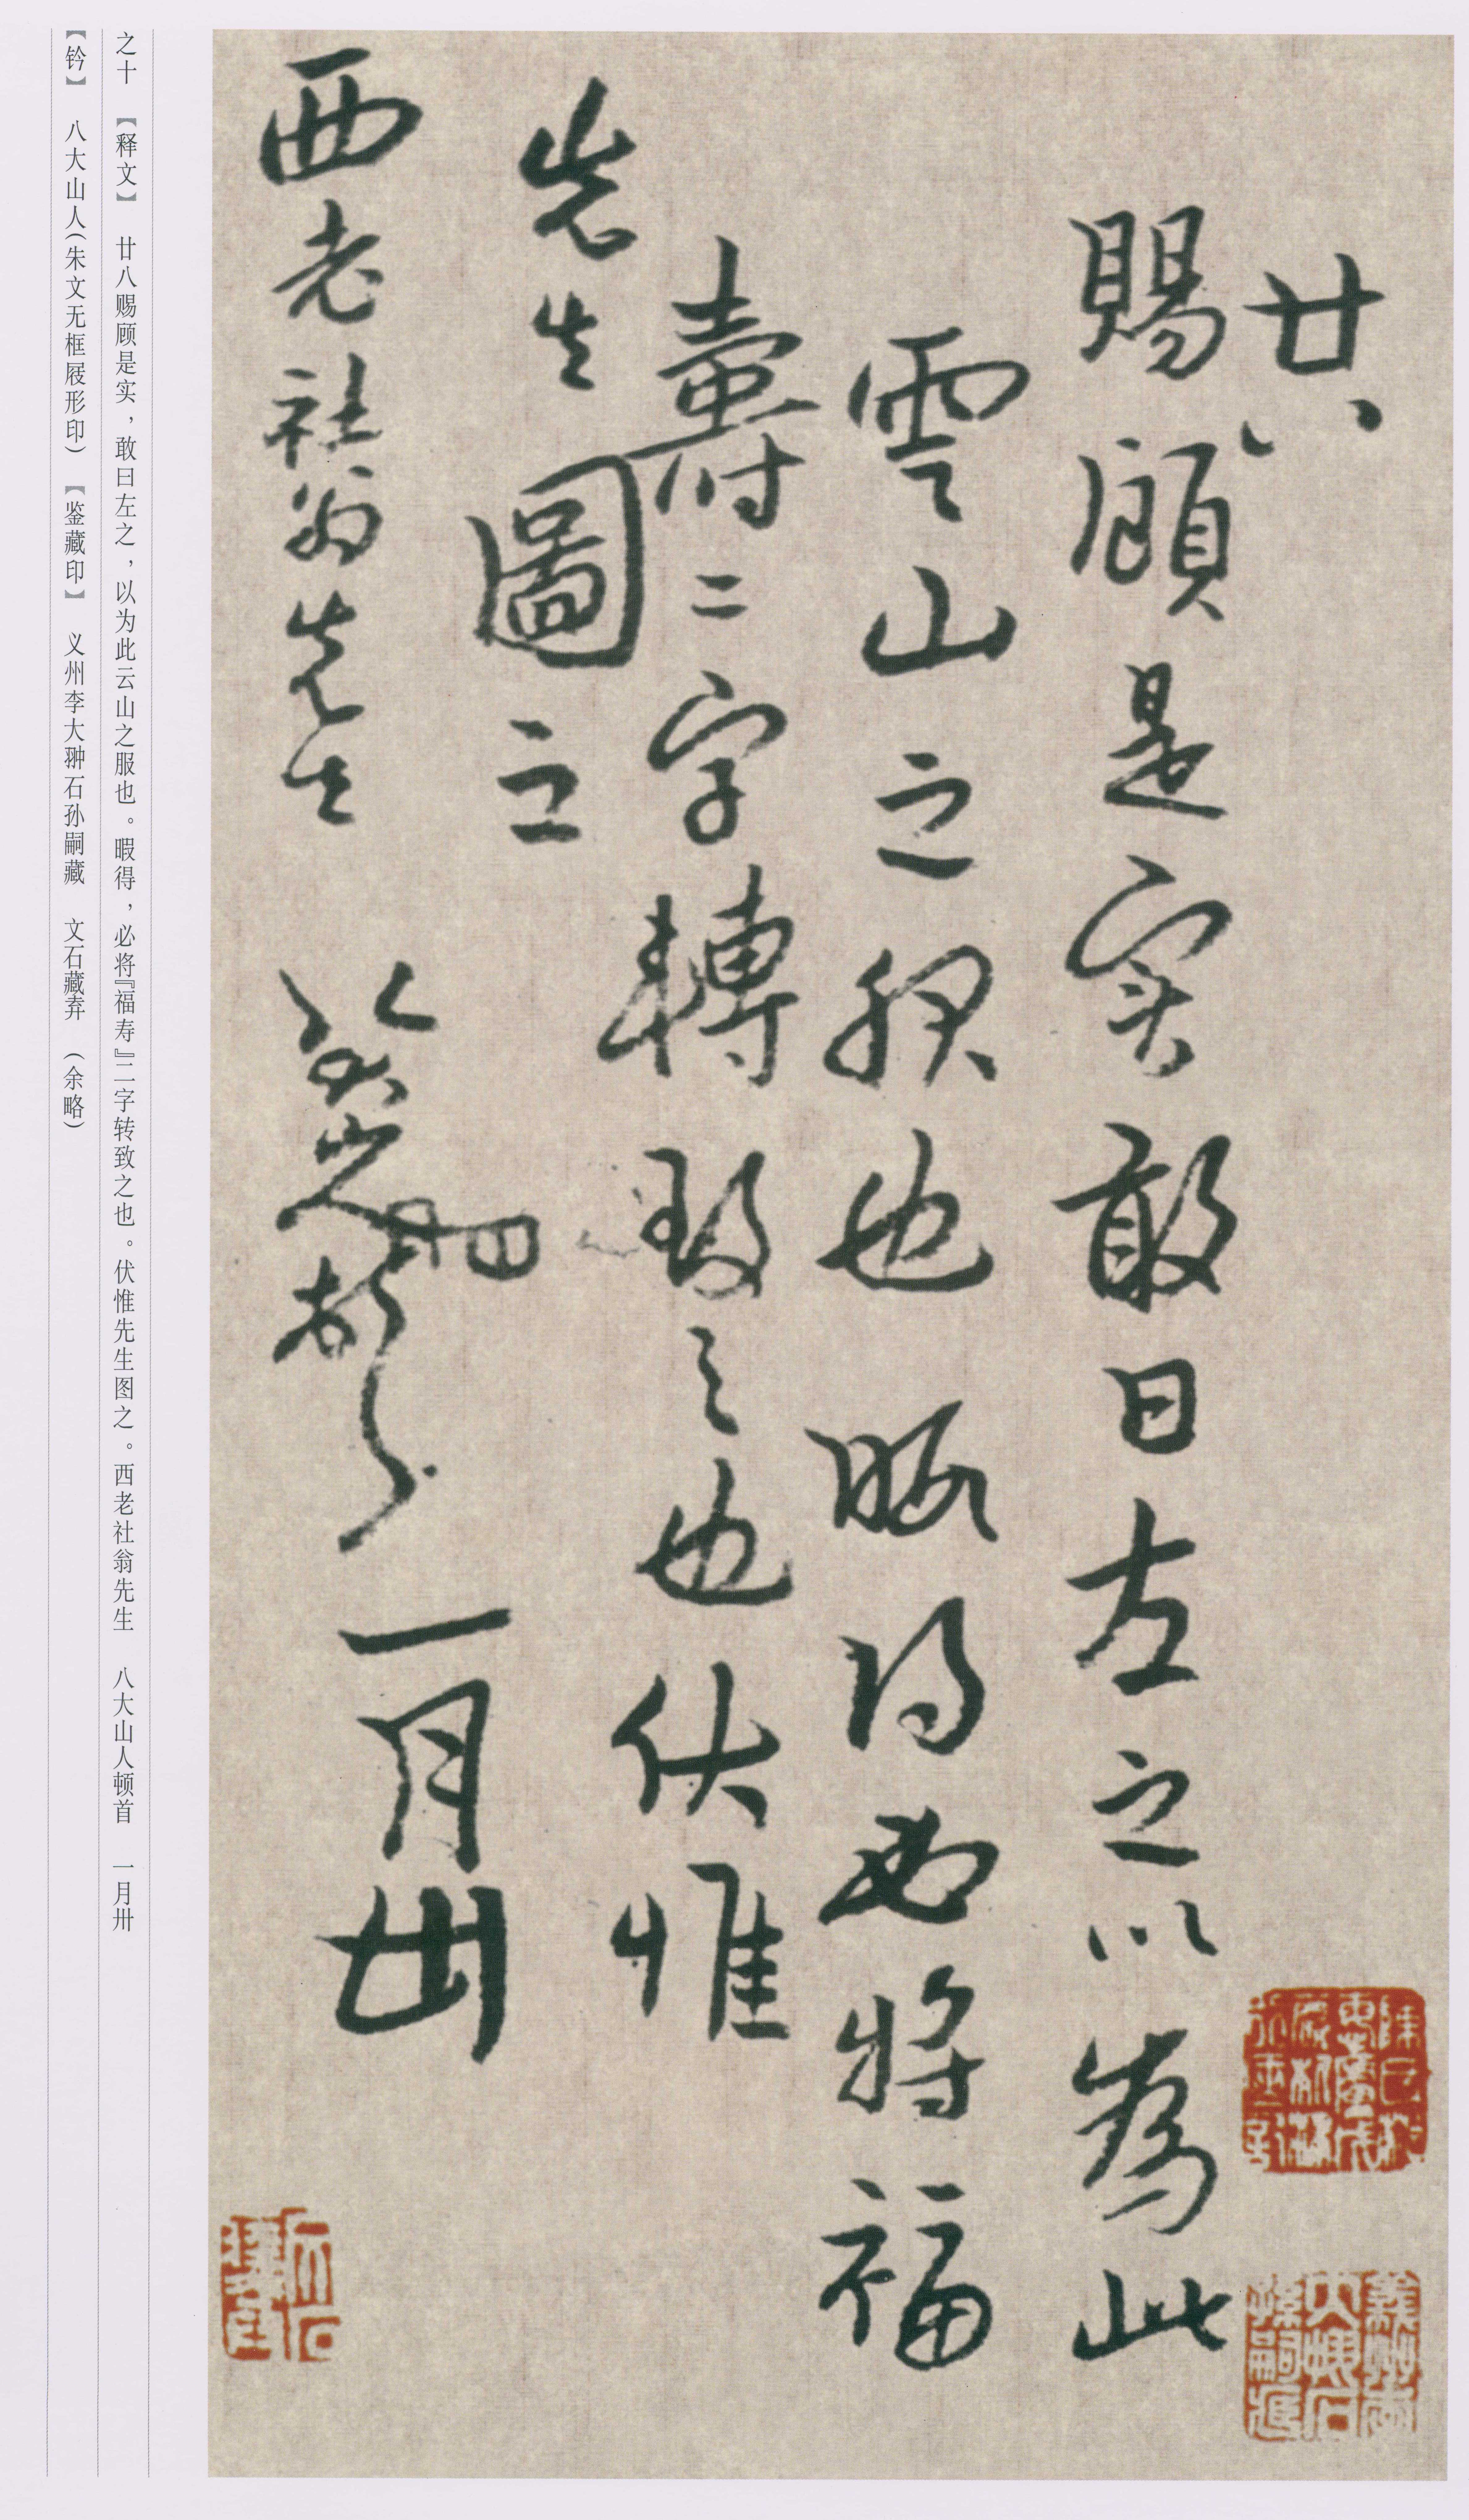 廿八
賜顧是实敢曰左之以為此
雲山之服也暇得必將福
壽二字轉致之也伏惟
先生圖之
西老社翁先生 八大山人頓首
一月卅
之十 【释文】 廿八赐顾是实，敢曰左之，以为此云山之服也。暇得，必将『福寿』二字转致之也。伏惟先生图之。西老社翁先生 八大山人顿首 一月卅
【钤】 八大山人（朱文无框屐形印） 【鉴藏印】 义州李大翀石孙嗣藏 文石藏弆 （余略）
義州李大翀石孫嗣藏